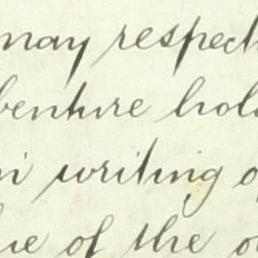 may respect
benture hol
in writing o
ue of the o